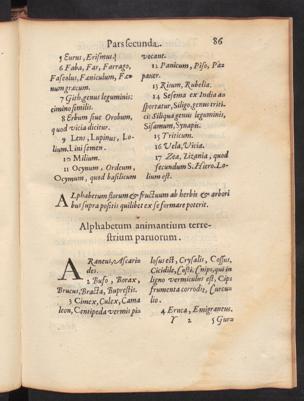 Pars secunda. 86
5 Eurus, Erismus.
6 Faba, Far, Farrago,
Faseolus, Fœniculum, Fœ-
num græcum.
7 Gith, genus leguminis:
cimino similis.
8 Erbum siue Orobum,
quod vicia dicitur.
9 Lens, Lupinus, Lo-
lium. Lini semen.
10 Milium.
11 Ocynum, Ordeum,
Ocymum, quod basilicum
vocant.
12 Panicum, Piso, Pa-
pauer.
13 Risum, Rubelia.
14 Sesema ex India as
sportatur, Siligo. genus triti-
ci: Siliqua genus leguminis,
Sisamum, Synapis.
15 Triticum.
16 Vela, Vicia.
17 Zea, Lizania, quod
secundum S. Hiero. Lo-
lium est.
ALphabetum florum & fructuum ab herbis & arbori
bus supra positis quilibet ex se formare poterit.
Alphabetum animantium terre-
strium paruorum.
ARaneus, Ascari-
des.
2 Bufo, Borax,
Brucus, Bracta, Buprestis.
3 Cimex, Culex, Cama
leon, Centipeda vermis pi-
losus est, Crysalis, Cossus,
Cicidile, Custi, Cnips, qui in
ligno vermiculus est, Cips
frumenta corrodit, Curcu-
lio.
4 Eruca, Emigraneus.
Y 2 5 Guru